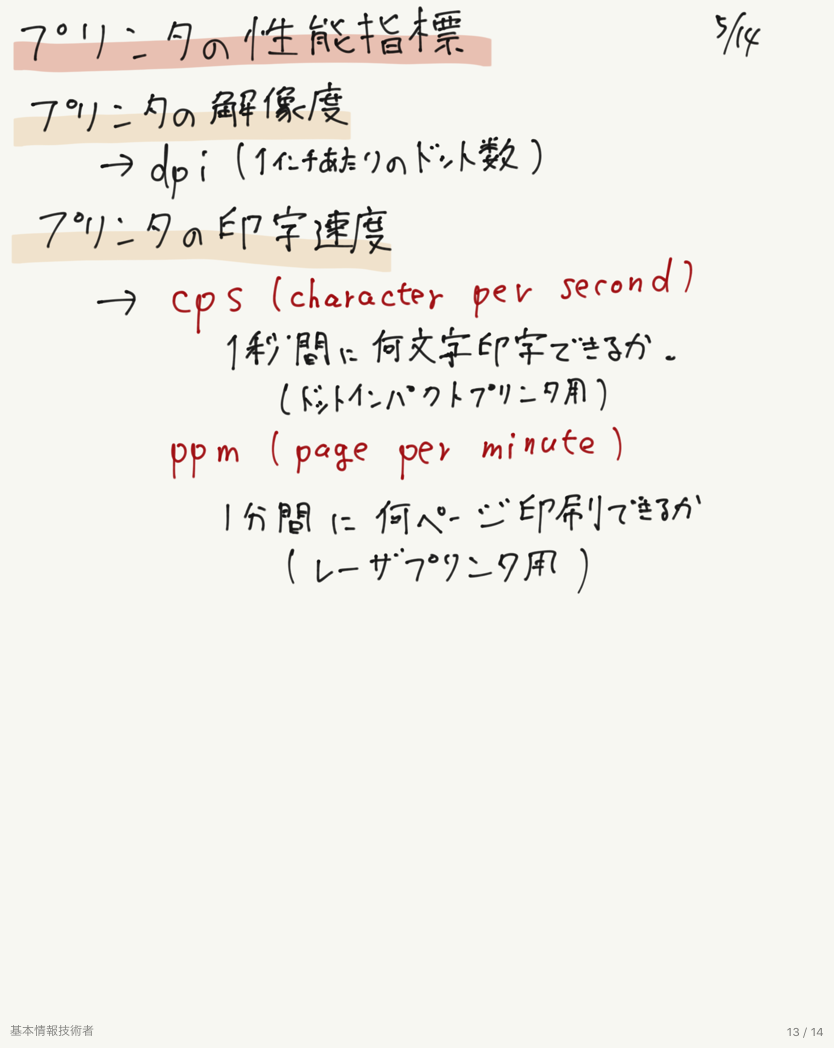 プリンタの性能指標
5/14
プリンタの解像度
→ dpi (1インチあたりのドット数)
プリンタの印字速度
→ cps (character per second)
1秒間に何文字印字できるか.
(ドットインパクトプリンタ用)
ppm (page per minute)
1分間に何ページ印刷できるか
(レーザプリンタ用)
基本情報技術者
13 / 14